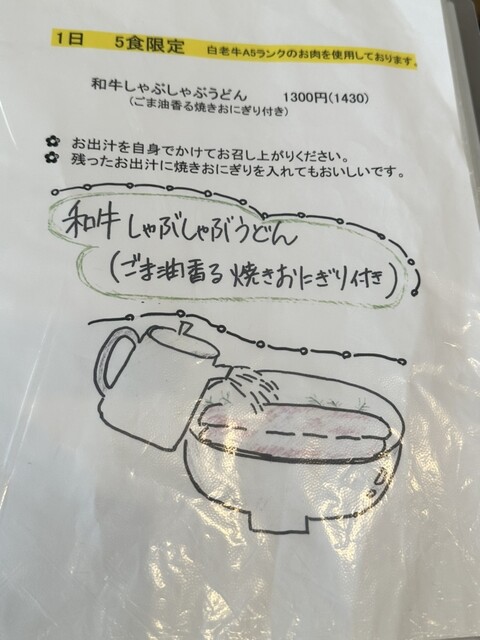 1日　5食限定　白老牛A5ランクのお肉を使用しております。
和牛しゃぶしゃぶうどん　1300円(1430)
(ごま油香る焼きおにぎり付き)
お出汁を自身でかけてお召し上がりください。
残ったお出汁に焼きおにぎりを入れてもおいしいです。
和牛しゃぶしゃぶうどん
(ごま油香る焼きおにぎり付き)